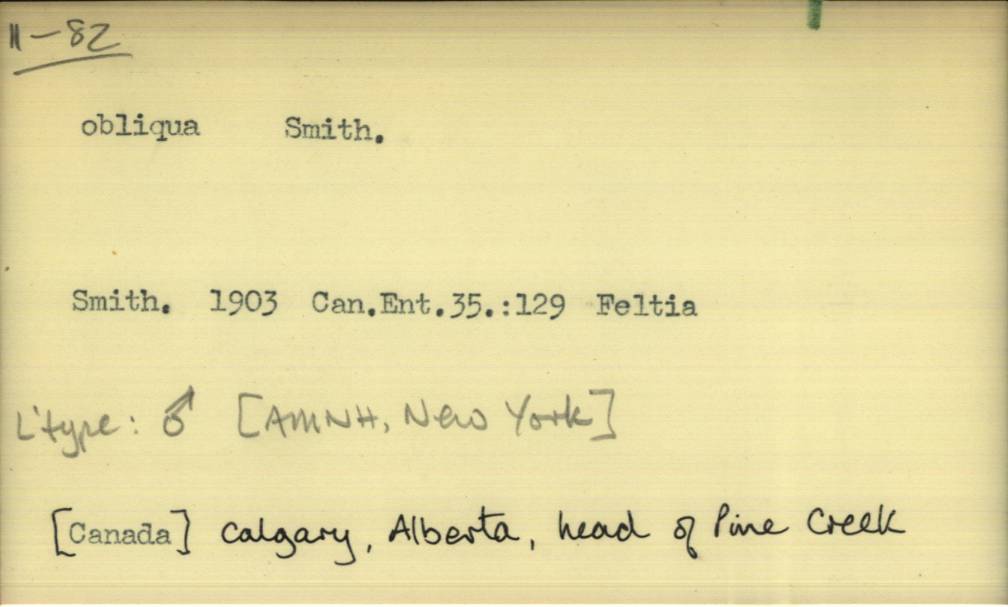 11-82
obliqua Smith.
Smith. 1903 Can.Ent.35.:129 Feltia
L'type: ♂ [AMNH, New York]
[Canada] Calgary, Alberta, head of Pine Creek